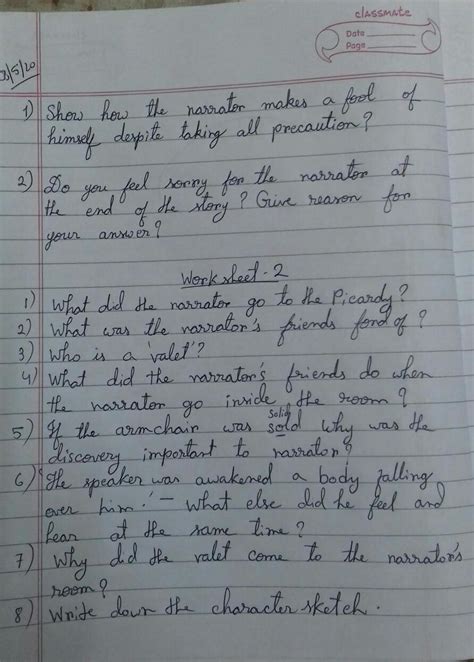 classmate
Date
Page
/5/20
1) Show how the narrator makes a fool of
himself despite taking all precaution?
2) Do you feel sorry for the narrator at
the end of the story? Give reason for
your answer?
Work sheet - 2
1) What did the narrator go to the Picardy?
2) What was the narrator's friends fond of?
3) Who is a 'valet'?
4) What did the narrator's friends do when
the narrator go inside the room?
5) If the armchair was solid why was the
discovery important to narrator?
6) 'The speaker was awakened a body falling
over him.' - What else did he feel and
hear at the same time?
7) Why did the valet come to the narrator's
room?
8) Write down the character sketch.